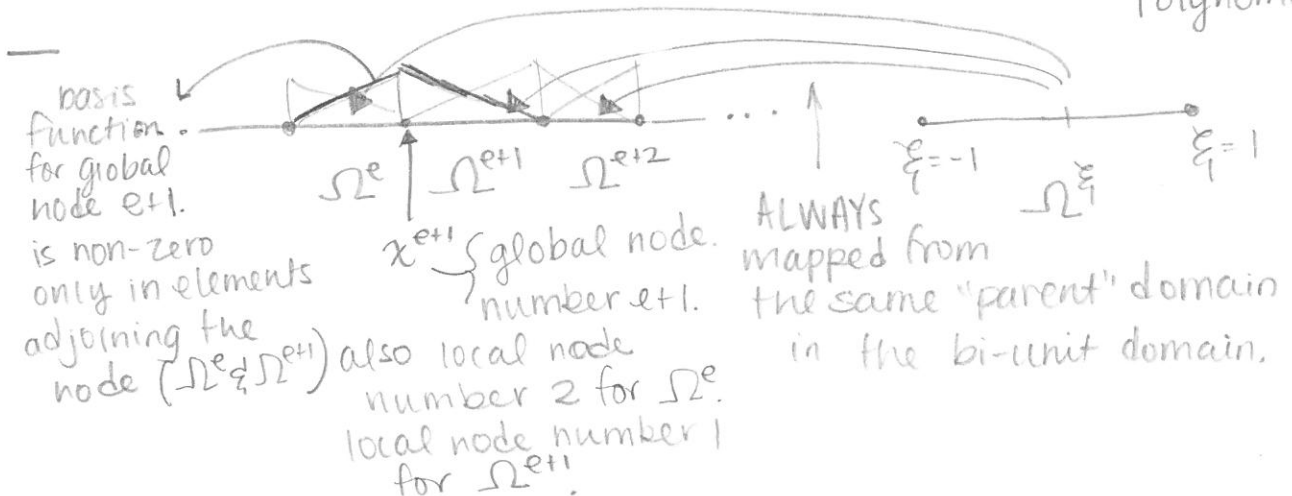 basis
function.
for global
node e+1.
is non-zero
only in elements
adjoining the
node (Ω^e & Ω^{e+1})
Ω^e Ω^{e+1} Ω^{e+2}
...
x^{e+1} { global node.
number e+1.
also local node
number 2 for Ω^e.
local node number 1
for Ω^{e+1}.
ALWAYS
mapped from
the same "parent" domain
in the bi-unit domain.
ξ=-1
Ω^ξ
ξ=1